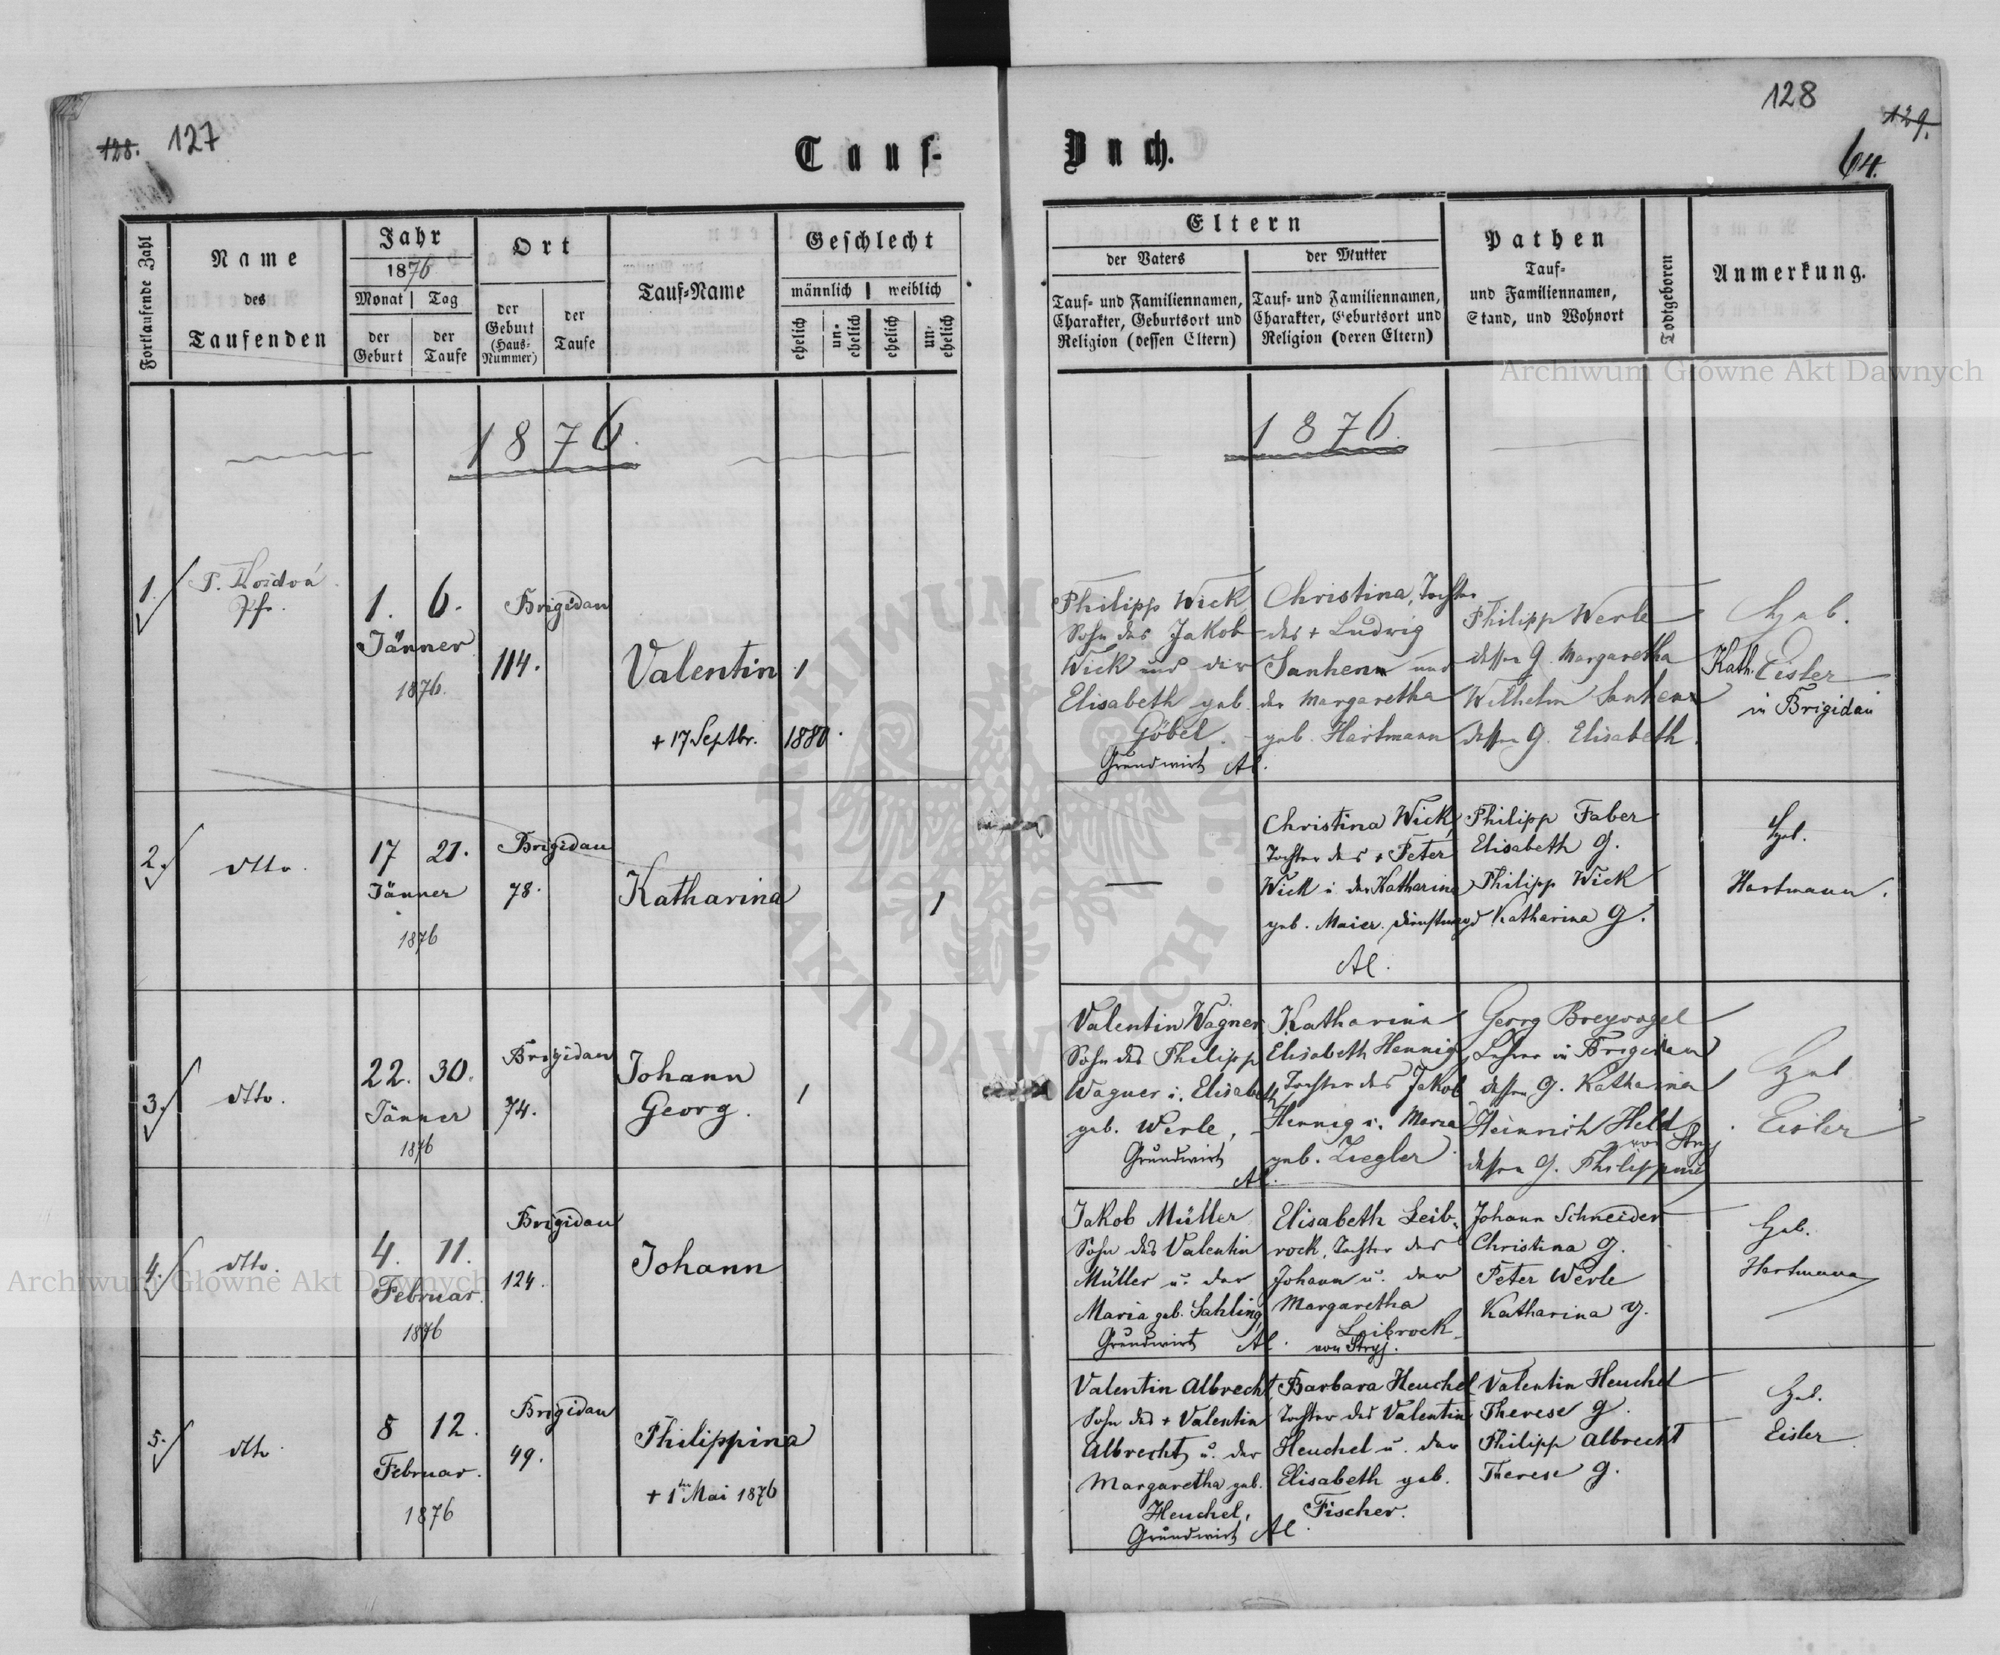 128. 127
128
129.
64.
Tauf-
Buch.
Fortlaufende Zahl
Name
des
Taufenden
Jahr
1876
Monat | Tag
der
Geburt
der
Taufe
Ort
der
Geburt
(Haus-
Nummer)
der
Taufe
Tauf-Name
Geschlecht
männlich | weiblich
ehelich
un-
ehelich
ehelich
un-
ehelich
Eltern
der Vaters
der Mutter
Tauf- und Familiennamen,
Charakter, Geburtsort und
Religion (dessen Eltern)
Tauf- und Familiennamen,
Charakter, Geburtsort und
Religion (deren Eltern)
Pathen
Tauf-
und Familiennamen,
Stand, und Wohnort
Todtgeboren
Anmerkung.
Archiwum Główne Akt Dawnych
1876.
1876.
1.
Pf.
1. 6.
Jänner
1876.
Brigidau
114.
Valentin
1
+ 17 Septbr. 1880.
Philipp Wick
Sohn des Jakob
Wick und der
Elisabeth geb.
Göbel.
Grundwirt
Christina, Tochter
des + Ludwig
und
der Margaretha
geb. Hartmann
Philipp Werle
dessen G. Margaretha
Wilhelm
dessen G. Elisabeth.
Heb.
Kath. Eisler
in Brigidau
2.
dtto.
17 21.
Jänner
1876
Brigidau
78.
Katharina
1
Christina Wick,
Tochter des + Peter
Wick u. der Katharina
geb. Maier. Dienstmagd
Philipp Faber
Elisabeth G.
Philipp Wick
Katharina G.
Heb.
Hartmann.
3.
dtto.
22. 30.
Jänner
1876
Brigidau
74.
Johann
Georg.
1
Valentin Wagner
Sohn des Philipp
Wagner u. Elisabeth
geb. Werle,
Grundwirt
Katharina
Elisabeth Hennig,
Tochter des Jakob
Hennig u. Maria
geb. Ziegler.
Georg Breyvogel
Lehrer in Brigidau
dessen G. Katharina
Heinrich Held
von Stryj
dessen G. Philippine
Heb
Eisler
4.
dtto.
4. 11.
Februar.
1876
Brigidau
124.
Johann
Jakob Müller
Sohn des Valentin
Müller u. der
Maria geb. Sahling,
Grundwirt
Elisabeth Leib-
rock, Tochter des
Johann u. der
Margaretha
Leibrock
von Stryj.
Johann Schneider
Christina G.
Peter Werle
Katharina G.
Heb.
Hartmann
Archiwum Główne Akt Dawnych
5.
dtto.
8 12.
Februar.
1876
Brigidau
49.
Philippina
+ 1ten Mai 1876
Valentin Albrecht,
Sohn des + Valentin
Albrecht u. der
Margaretha geb.
Heuchel,
Grundwirt
Barbara Heuchel
Tochter des Valentin
Heuchel u. der
Elisabeth geb.
Fischer.
Valentin Heuchel
Therese G.
Philipp Albrecht
Therese G.
Heb.
Eisler
ARCHIWUM GŁÓWNE AKT DAWNYCH